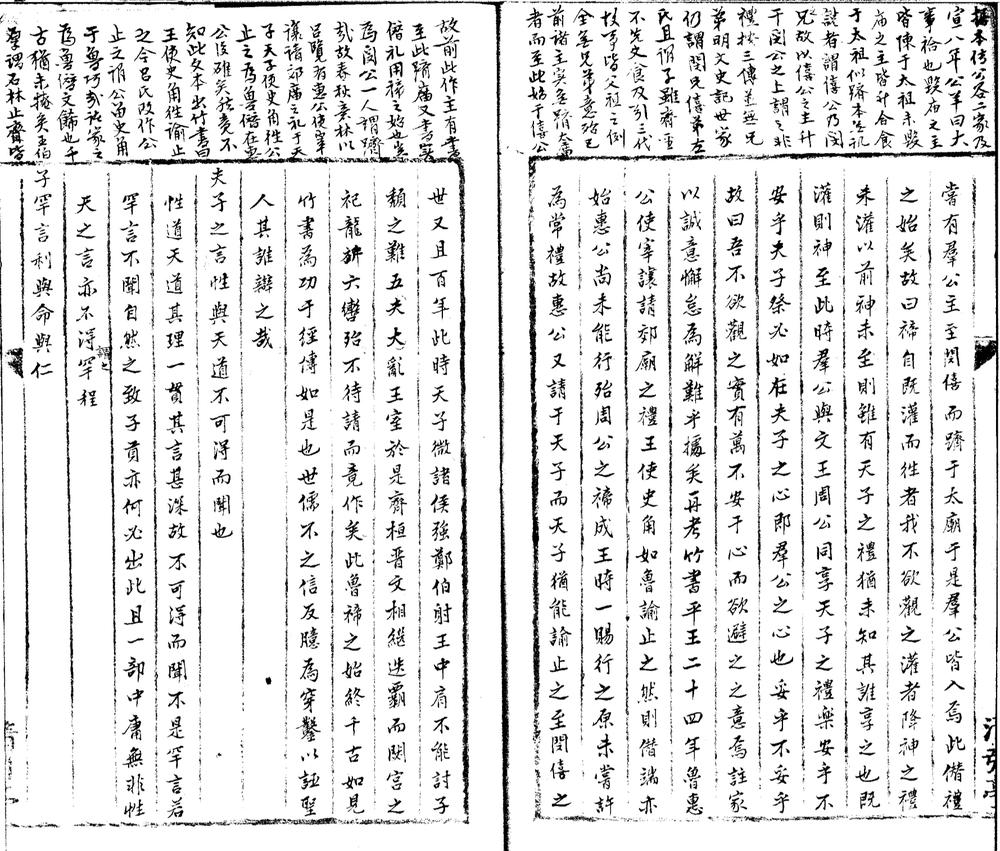 嘗有羣公主至閔僖而躋于太廟于是羣公皆入焉此僭禮
之始矣故曰禘自既灌而往者我不欲觀之灌者降神之禮
未灌以前神未至則雖有天子之禮猶未知其誰享之也既
灌則神至此時羣公與文王周公同享天子之禮樂安乎不
安乎夫子祭必如在夫子之心即羣公之心也妥乎不妥乎
故曰吾不欲觀之實有萬不安于心而欲避之之意焉註家
以誠意懈怠為解難乎據矣再考竹書平王二十四年魯惠
公使宰讓請郊廟之禮王使史角如魯諭止之然則僭端亦
始惠公尚未能行殆周公之禘成王時一賜行之原未嘗許
為常禮故惠公又請于天子而天子猶能諭止之至閔僖之
世又且百年此時天子微諸侯強鄭伯射王中肩不能討子
頹之難五大夫亂王室於是齊桓晋文相繼迭霸而閟宮之
祀龍旂六轡殆不待請而竟作矣此魯禘之始終千古如見
竹書為功于經傳如是也世儒不之信反臆為穿鑿以誣聖
人其誰辯之哉
夫子之言性與天道不可得而聞也
性道天道其理一貫其言甚深故不可淂而聞不是罕言若
罕言不聞自然之致子貢亦何必出此且一部中庸無非性
天之言亦不淂謂之罕程
子罕言利與命與仁
宣八年公羊曰大
事祫也毀廟之主
皆陳于太祖未毀
廟之主皆升合食
于太祖似躋本無訊
討者謂僖公乃閔
兄故以僖公之主升
于閔公之上謂之非
禮按三傳並無兄
弟明文史記世家
仍謂閔兄僖弟左
氏且謂子雖齊聖
不先父食及引三代
故事皆父祖之例
全無兄弟意殆已
前諸主實無躋太廟
者而至此始于僖公
故前此作主有書
至此躋廟又書實
僭礼用禘之始也豈
為閔公一人謂躋
哉故春秋書林以
呂覽有惠公使宰
讓請郊廟之礼于天
子天子使史角往公
止之于魯僭在惠
公後確矣秪竟不
知此文本出竹書曰
王使史角往諭止
之今呂氏改作公
止之謂公留史角
于魯巧哉祕家之
為魯僭文飾也千
古猶未掩矣王伯
厚謂石林止齋皆